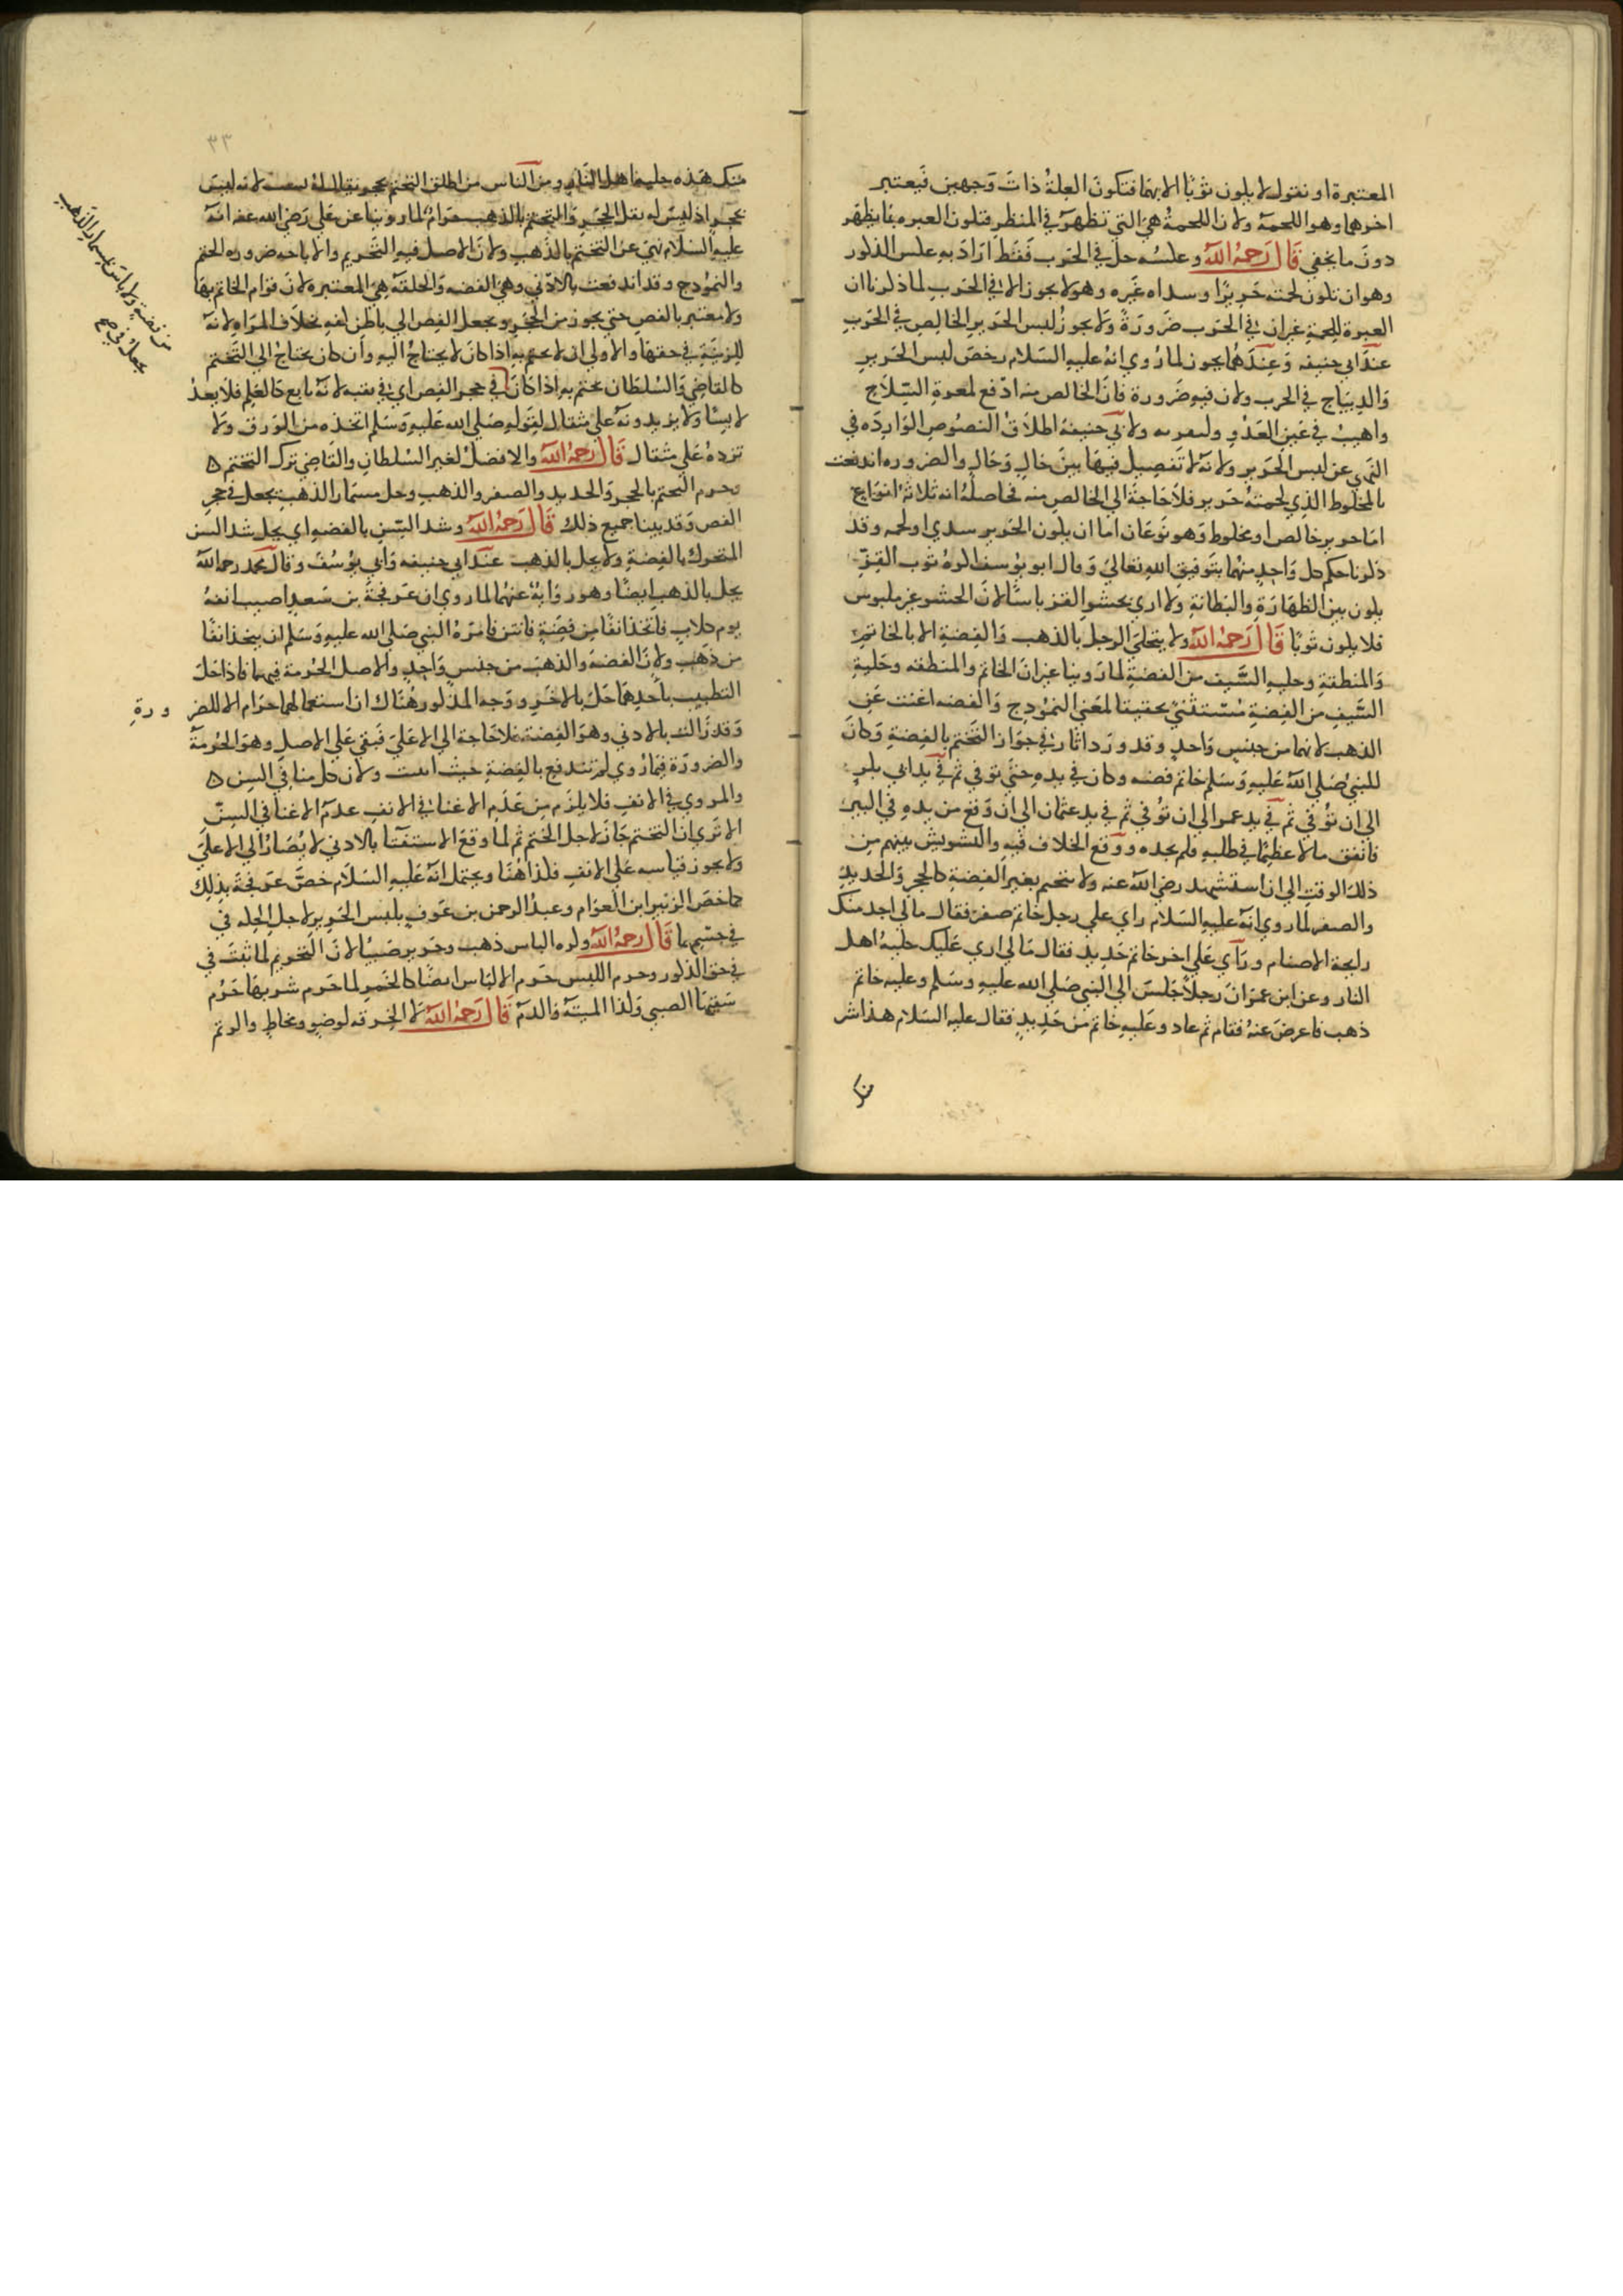 المعتبرة او نقول لا يكون ثوبًا الا بهما فتكون العلة ذات وجهين فيعتبر
اخرهما وهو اللحمة ولان اللحمة هي التي تظهر في المنظر فتكون العبره بما يظهر
دون ما يخفي قال رحمه الله وعكسه حل في الحرب فقط اراد به عكس المذكور
وهو ان تكون لحمته حريرًا وسداه غيره وهو لا يجوز الا في الحرب لما ذكرنا ان
العبرة للحمة غير ان في الحرب ضرورة ولا يجوز لبس الحرير الخالص في الحرب
عند ابي حنيفه وعندهما يجوز لما روي انه عليه السلام رخص لبس الحرير
والديباج في الحرب ولان فيه ضرورة فان الخالص منه ادفع لمعرة السلاح
واهيب في عين العدو ولبريقه ولابي حنيفة اطلاق النصوص الوارده في
النهي عن لبس الحرير ولانه لا تفصيل فيها بين حال وحال والضروره اندفعت
بالمخلوط الذي لحمته حرير فلا حاجة الي الخالص منه فحاصله انه ثلاثة انواع
اما حرير خالص او مخلوط وهو نوعان اما ان يكون الحرير سدي او لحمه وقد
ذكرنا حكم كل واحد منهما بتوفيق الله تعالي وقال ابو يوسف اكره ثوب القز
يكون بين الظهارة والبطانة ولا اري بحشو القز باسًا لان الحشو غير ملبوس
فلا يكون ثوبًا قال رحمه الله ولا يتحلي الرجل بالذهب والفضة الا بالخاتم
والمنطقة وحلية السيف من الفضة لما روينا غير ان الخاتم والمنطقه وحلية
السيف من الفضة مستثني تحقيقا لمعني النموذج والفضه اغنت عن
الذهب لانهما من جنس واحد وقد ورد اثار في جواز التختم بالفضة وكان
للنبي صلي الله عليه وسلم خاتم فضه وكان في يده حتي توفي ثم في يد ابي بكر
الي ان توفي ثم في يد عمر الي ان توفي ثم في يد عثمان الي ان وقع من يده في البير
فانفق مالا عظيمًا في طلبه فلم يجده ووقع الخلاف فيه والتشويش بينهم من
ذلك الوقت الي ان استشهد رضي الله عنه ولا يتختم بغير الفضة كالحجر والحديد
والصفر لما روي انه عليه السلام راي علي رجل خاتم صفر فقال مالي اجد منك
رايحة الاصنام وراي علي اخر خاتم حديد فقال مالي اري عليك حلية اهل
النار وعن ابن عمر ان رجلًا جلس الي النبي صلي الله عليه وسلم وعليه خاتم
ذهب فاعرض عنه فقام ثم عاد وعليه خاتم من حديد فقال عليه السلام هذا شر
منك
٣٣
منك هذه حلية اهل النار ومن الناس من اطلق التختم بحجر يقال له يشب لانه ليس
بحجر اذ ليس له ثقل الحجر والتختم بالذهب حرام لما روينا عن علي رضي الله عنه انه
عليه السلام نهي عن التختم بالذهب ولان الاصل فيه التحريم والاباحه ضروره الختم
والنموذج وقد اندفعت بالادني وهي الفضه والحلقة هي المعتبره لان قوام الخاتم بها
ولا معتبر بالفص حتي يجوز من الحجر ويجعل الفص الي باطن كفه بخلاف المراه لانه
للزينة في حقها والاولي ان لا يختم به اذا كان لا يحتاج اليه وان كان يحتاج الي التختم
كالقاضي والسلطان يختم به اذا كان في حجر الفص اي في ثقبه لانه تابع كالعلم فلا يعد
لابسًا ولا يزيد وزنه علي مثقال لقوله صلي الله عليه وسلم اتخذه من الورق ولا
تزده علي مثقال قال رحمه الله والافضل لغير السلطان والقاضي ترك التختم
وحرم التختم بالحجر والحديد والصفر والذهب وحل مسمار الذهب يجعل في حجر
الفص وقد بينا جميع ذلك قال رحمه الله وشد السن بالفضه اي يحل شد السن
المتحرك بالفضة ولا يحل بالذهب عند ابي حنيفه وابي يوسف وقال محمد رحمه الله
يحل بالذهب ايضًا وهو رواية عنهما لما روي ان عرفجة بن سعد اصيب انفه
يوم كلاب فاتخذ انفًا من فضة فانتن فامره النبي صلي الله عليه وسلم ان يتخذ انفًا
من ذهب ولان الفضة والذهب من جنس واحد والاصل الحرمة فيهما فاذا حل
التطبيب باحدهما حل بالاخر ووجه المذكور هناك ان استعمالهما حرام الا للضر ورة
وقد زالت بالادني وهو الفضة فلا حاجة الي الاعلي فبقي علي الاصل وهو الحرمة
والضرورة فيما روي لم تندفع بالفضة حيث انتنت ولان كلامنا في السن
والمروي في الانف فلا يلزم من عدم الاغنا في الانف عدم الاغنا في السن
الا تري ان التختم جاز لاجل الختم ثم لما وقع الاستغنا بالادني لا يصار الي الاعلي
ولا يجوز قياسه علي الانف فلذا هنا ويحتمل انه عليه السلام خص عرفجة بذلك
كما خص الزبير ابن العوام وعبد الرحمن بن عوف بلبس الحرير لاجل الحكه في
في جسمهما قال رحمه الله وكره الباس ذهب وحرير صبيًا لان التحريم لما ثبت في
في حق الذكور وحرم اللبس حرم الالباس ايضًا كالخمر لما حرم شربها حرم
سقيها الصبي وكذا الميتة والدم قال رحمه الله لا الخرقه لوضو ومخاط والرتم
من فضة ولا باس بمسمار الذهب
يجعل في